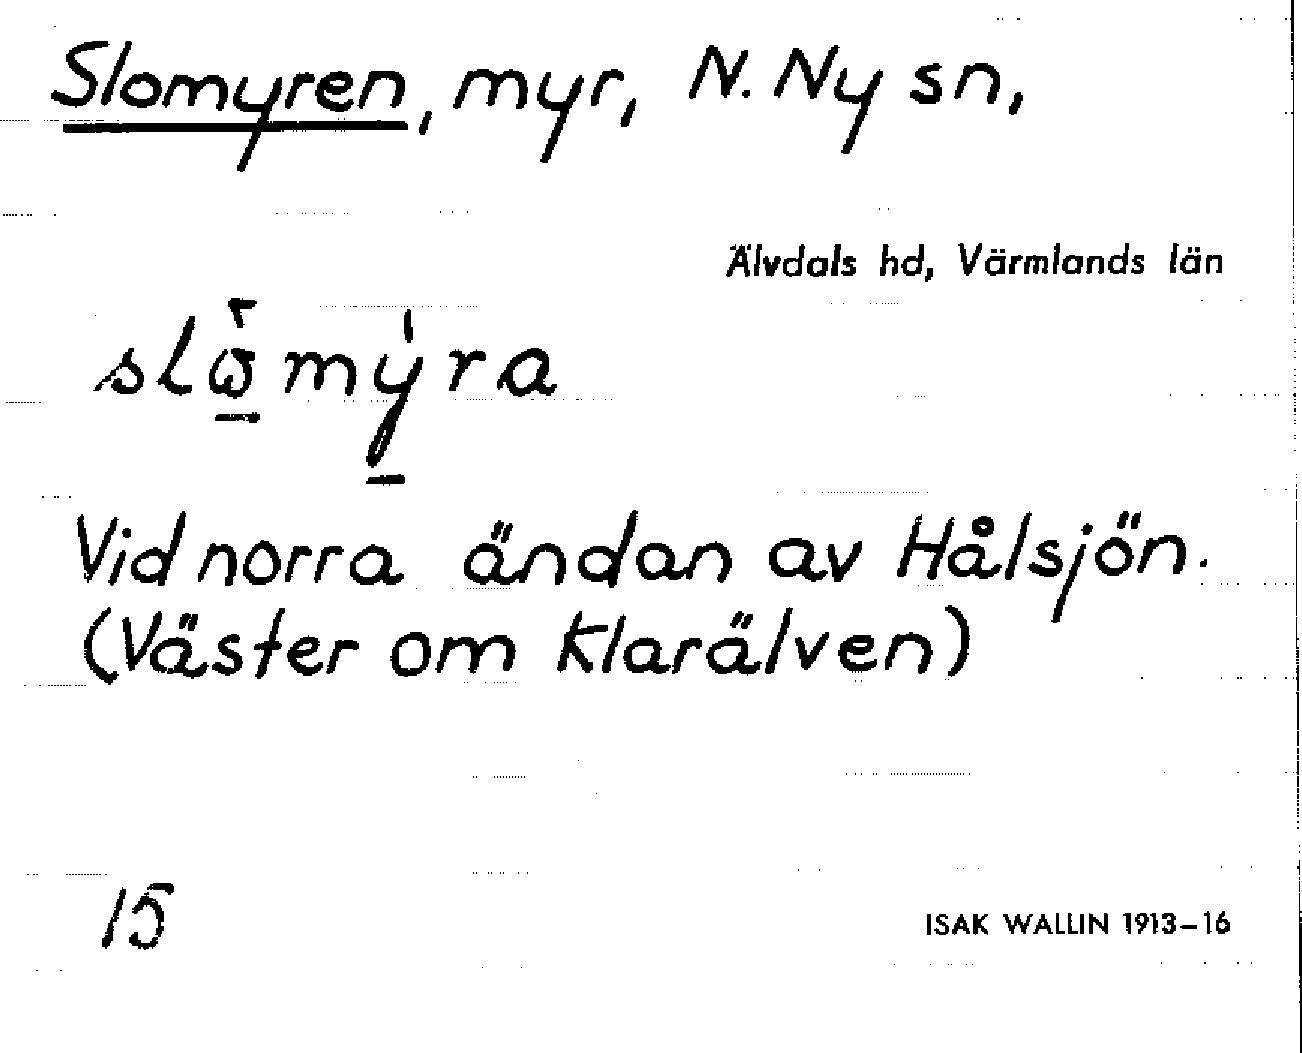 Slomyren, myr, N. Ny sn,
Älvdals hd, Värmlands län
Vid norra ändan av Hålsjön.
(Väster om Klarälven)
15
ISAK WALLIN 1913–16